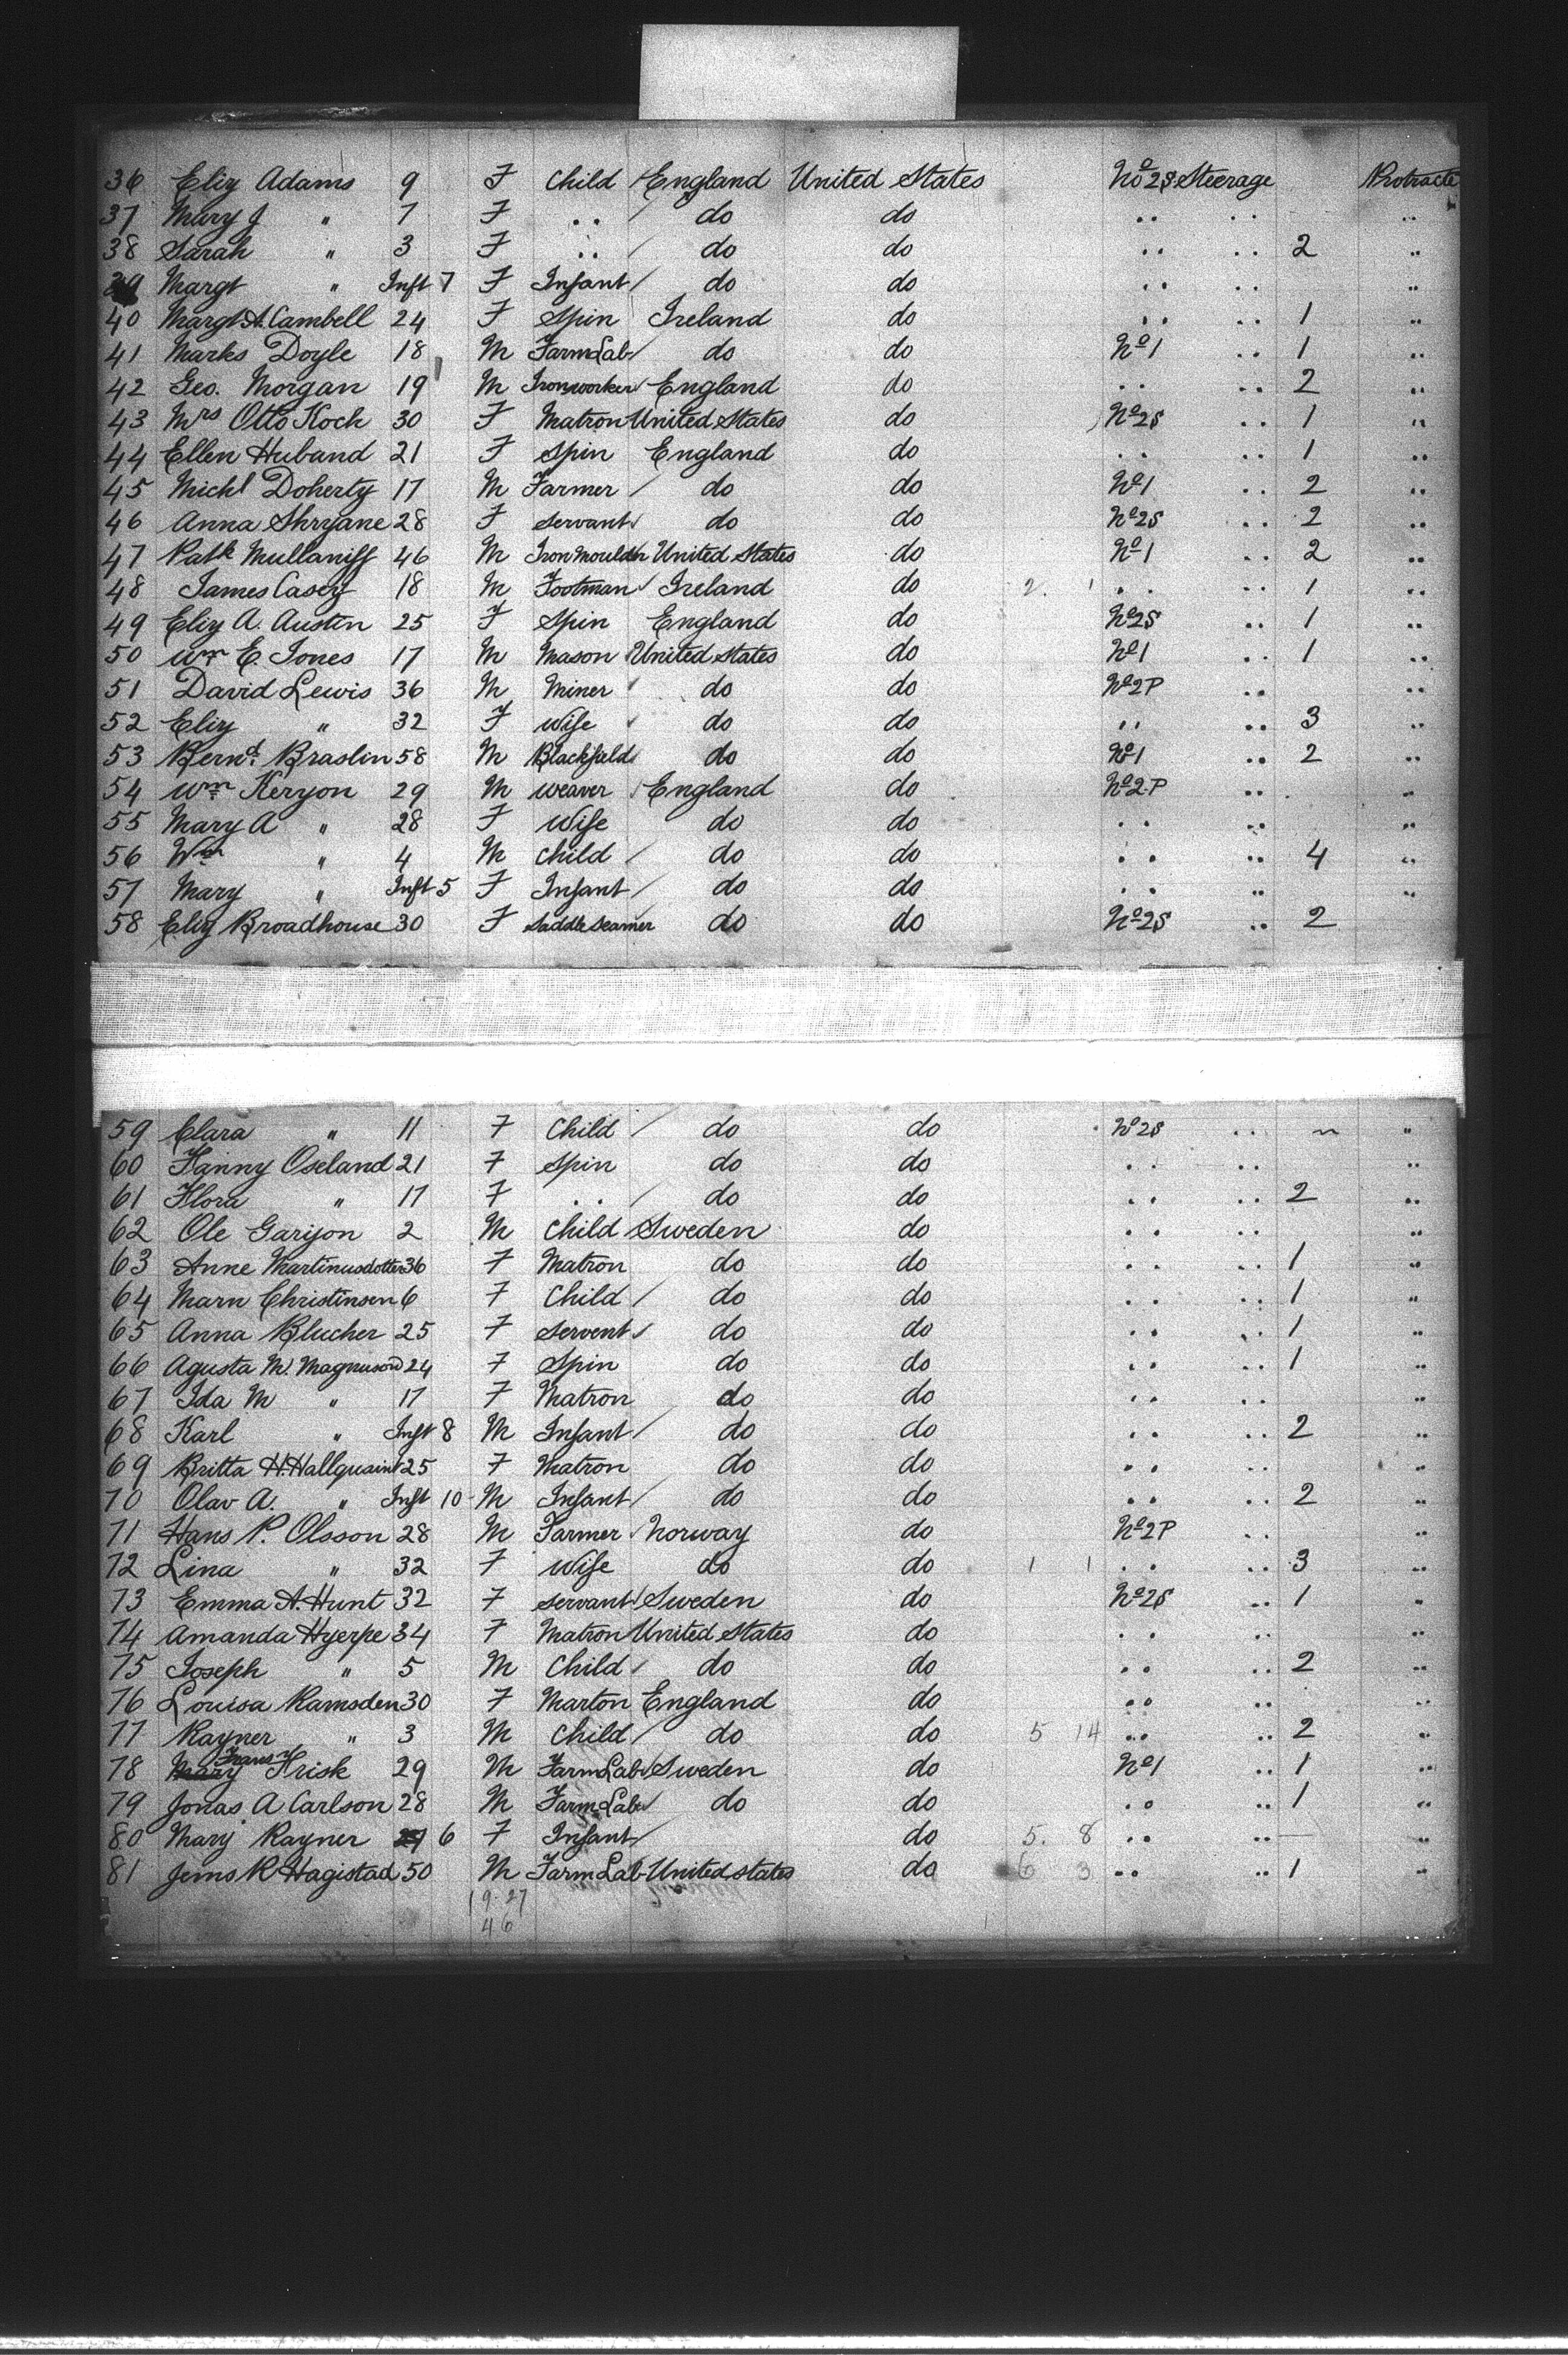 36 Eliz Adams 9 F Child England United States No 2S Steerage Protracte
37 Mary J " 7 F .. do do .. .. ..
38 Sarah " 3 F .. do do .. .. 2 ..
39 Margt " Inft 7 F Infant do do .. .. ..
40 Margt A. Cambell 24 F Spin Ireland do .. .. 1 ..
41 Marks Doyle 18 M Farm Lab do do No 1 .. 1 ..
42 Geo. Morgan 19 M Ironworker England do .. .. 2 ..
43 Mrs Otto Koch 30 F Matron United States do No 2S .. 1 ..
44 Ellen Huband 21 F Spin England do .. .. 1 ..
45 Michl Doherty 17 M Farmer do do No 1 .. 2 ..
46 Anna Shryane 28 F Servant do do No 2S .. 2 ..
47 Patk Mullaniff 46 M Iron Moulder United States do No 1 .. 2 ..
48 James Casey 18 M Footman Ireland do 2. 1 .. .. 1 ..
49 Eliz A. Austin 25 F Spin England do No 2S .. 1 ..
50 Wm E. Jones 17 M Mason United States do No 1 .. 1 ..
51 David Lewis 36 M Miner do do No 2P .. ..
52 Eliz " 32 F Wife do do .. .. 3 ..
53 Bernd. Braslin 58 M Blackfield do do No 1 .. 2 ..
54 Wm Keryon 29 M Weaver England do No 2.P .. ..
55 Mary A " 28 F Wife do do .. .. ..
56 Wm " 4 M Child do do .. .. 4 ..
57 Mary " Inft 5 F Infant do do .. .. ..
58 Eliz Broadhouse 30 F Saddle Seamer do do No 2S .. 2
59 Clara " 11 F Child do do No 2S .. ~ "
60 Fanny Oseland 21 F Spin do do .. .. ..
61 Flora " 17 F .. do do .. .. 2 ..
62 Ole Garijon 2 M Child Sweden do .. .. ..
63 Anne Martinusdotter 36 F Matron do do .. .. 1 ..
64 Marn Christinsen 6 F Child do do .. .. 1 ..
65 Anna Blucher 25 F Servent do do .. .. 1 ..
66 Agusta M. Magnuson 24 F Spin do do .. .. 1 ..
67 Ida M " 17 F Matron do do .. .. ..
68 Karl " Inft 8 M Infant do do .. .. 2 ..
69 Britta H. Hallqusint 25 F Matron do do .. .. ..
70 Olav A. " Inft 10 M Infant do do .. .. 2 ..
71 Hans P. Olsson 28 M Farmer Norway do No 2P .. ..
72 Lina " 32 F Wife do do 1 1 .. .. 3 ..
73 Emma A. Hunt 32 F Servant Sweden do No 2S .. 1 ..
74 Amanda Hyerpe 34 F Matron United States do .. .. ..
75 Joseph " 5 M Child do do .. .. 2 ..
76 Louisa Ramsden 30 F Marton England do .. .. ..
77 Rayner " 3 M Child do do 5 14 .. .. 2 ..
78 Mary Frans Frisk 29 M Farm Lab Sweden do No 1 .. 1 ..
79 Jonas A Carlson 28 M Farm Lab do do .. .. 1 ..
80 Mary Rayner 6 F Infant do 5. 8 .. .. — ..
81 Jems R Hagistad 50 M Farm Lab United states do 6 3 .. .. 1 ..
19.27
46